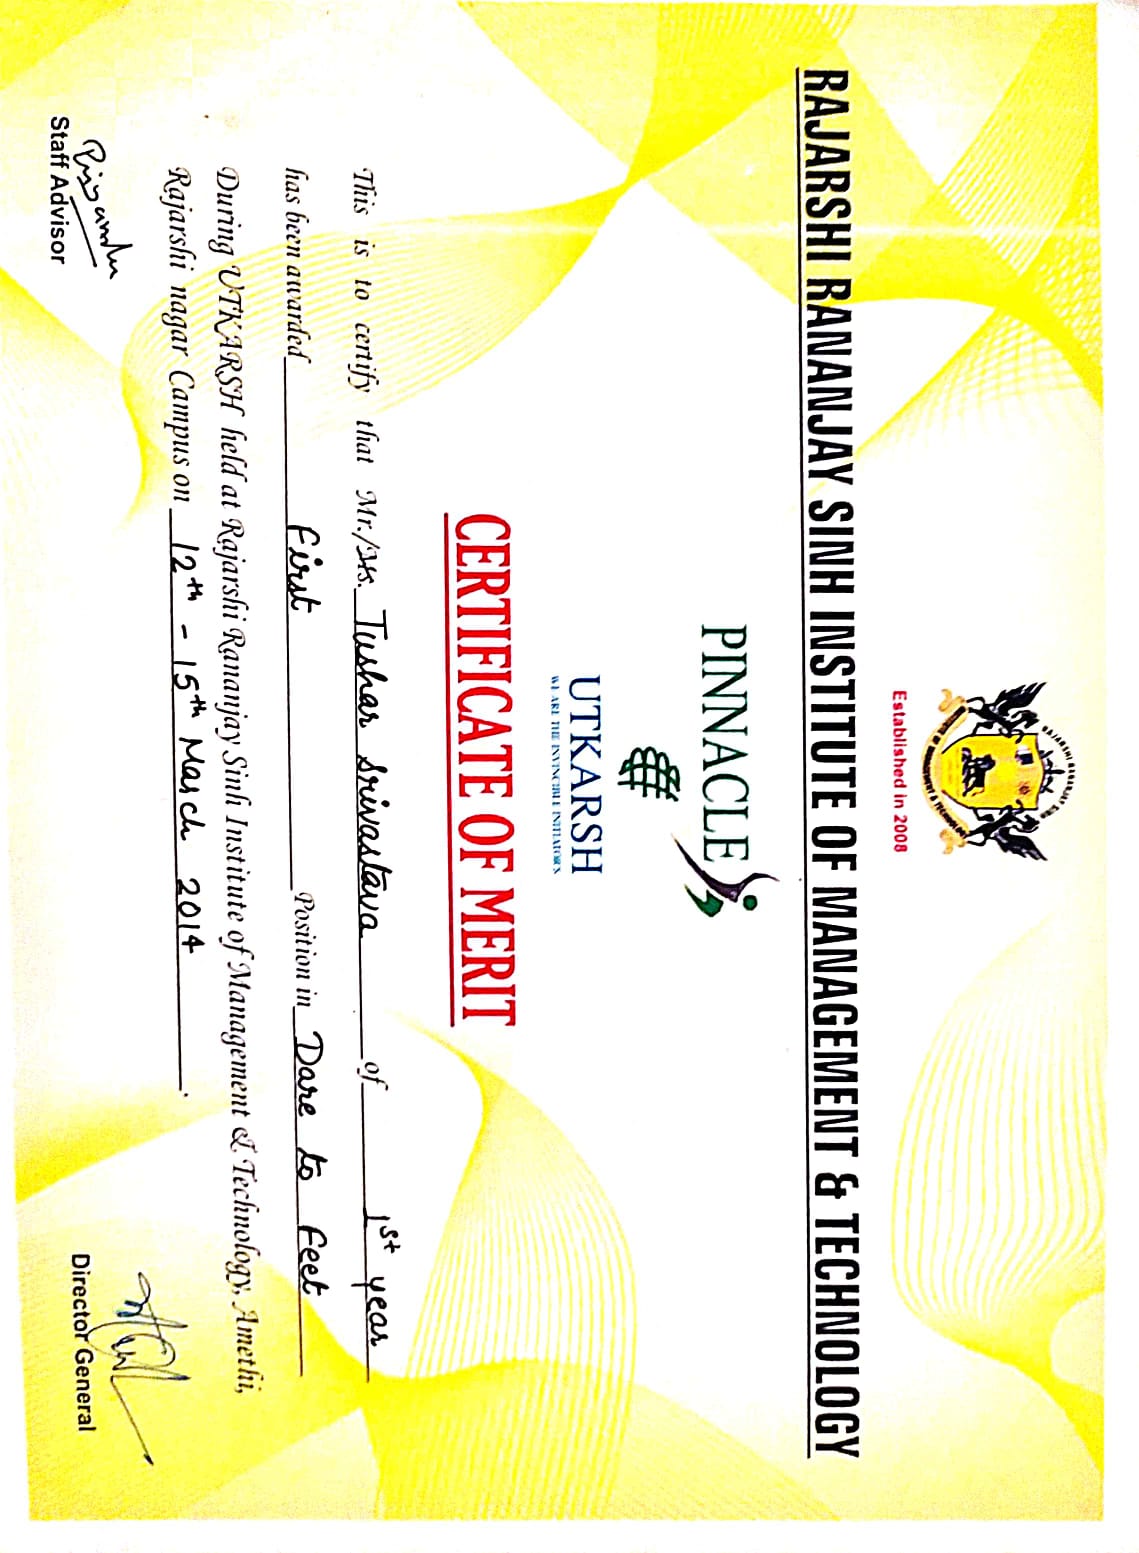 RAJARSHI RANANJAY SINH
INSTITUTE OF MANAGEMENT & TECHNOLOGY
Established in 2008
RAJARSHI RANANJAY SINH INSTITUTE OF MANAGEMENT & TECHNOLOGY
PINNACLE
UTKARSH
WE ARE THE INVINCIBLE INITIATORS
CERTIFICATE OF MERIT
This is to certify that Mr./Ms. Tushar Srivastava of 1st year
has been awarded First Position in Dare to Feet
During UTKARSH held at Rajarshi Rananjay Sinh Institute of Management & Technology, Amethi,
Rajarshi nagar Campus on 12th - 15th March 2014.
Priyanshu
Staff Advisor
Director General